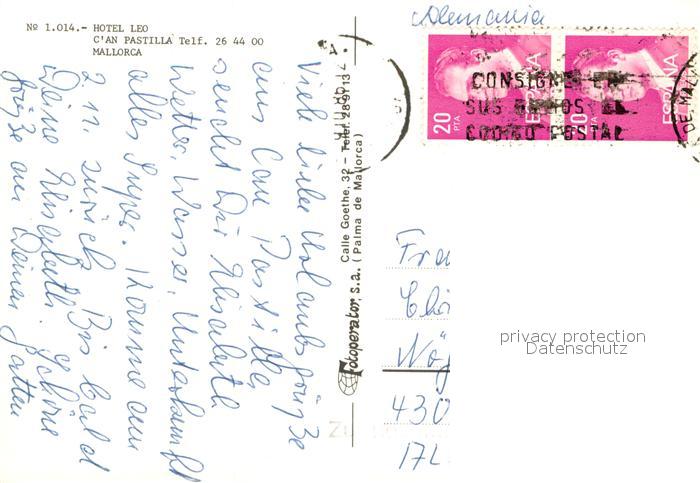 Nº 1.014.- HOTEL LEO
C'AN PASTILLA Telf. 26 44 00
MALLORCA
Viele liebe Urlaubsgrüße
aus Can Pastilla
sendet Dir Elisabeth
Wetter, Wasser, Unterkunft
alles super. Komme am
2.11. zurück. Bis bald
Deine Elisabeth. Schöne
Grüße an Deinen Gatten
Fotoperator, s.a.
Calle Goethe, 32 - Telef. 28 91 13
(Palma de Mallorca)
Alemania
20 PTA
ESPAÑA
20 PTA
ESPAÑA
CONSIGNE EN
SUS ENVIOS EL
CODIGO POSTAL
DE MA
Fra
430
privacy protection
Datenschutz